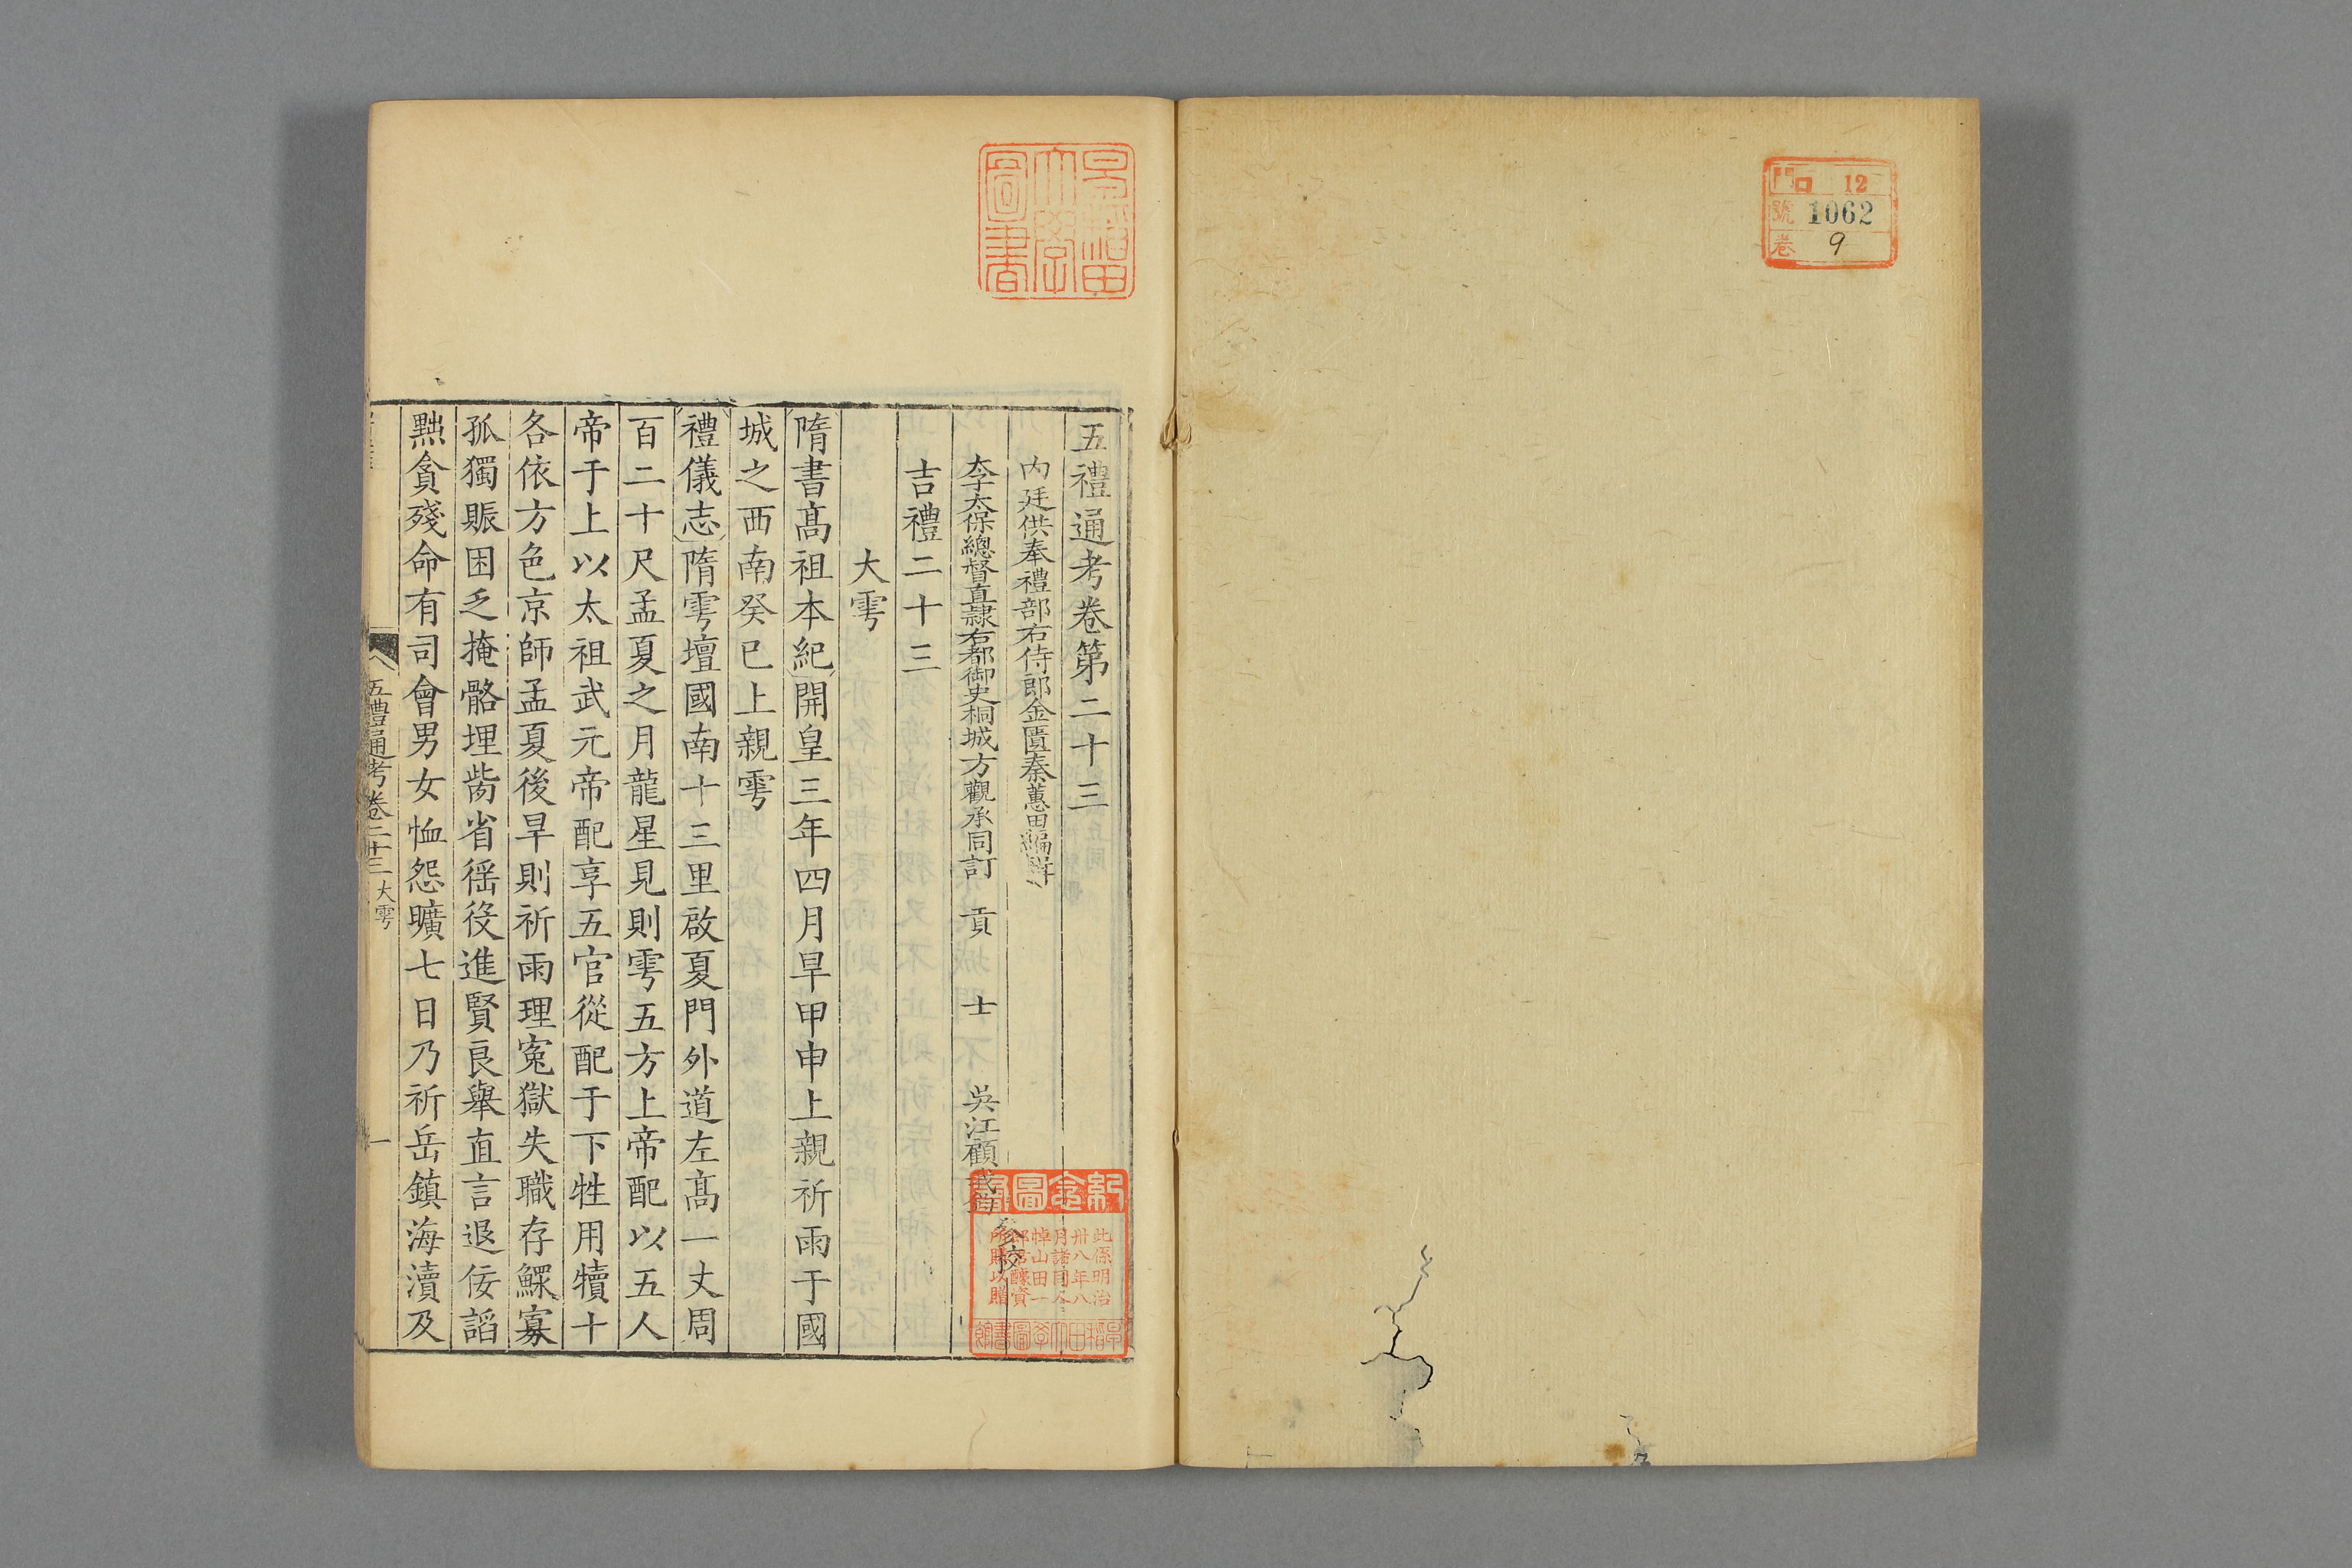 門 ロ 12
號 1062
卷 9
早稲田
大學
圖書
五禮通考卷第二十三
內廷供奉禮部右侍郎金匱秦蕙田編輯
太子太保總督直隸右都御史桐城方觀承同訂 貢 士 吳江顧
參校
吉禮二十三
大雩
隋書髙祖本紀開皇三年四月旱甲申上親祈雨于國
城之西南癸巳上親雩
禮儀志隋雩壇國南十三里啟夏門外道左髙一丈周
百二十尺孟夏之月龍星見則雩五方上帝配以五人
帝于上以太祖武元帝配享五官從配于下牲用犢十
各依方色京師孟夏後旱則祈雨理寃獄失職存鰥寡
孤獨賑困乏掩骼埋胔省徭役進賢良舉直言退佞諂
黜貪殘命有司會男女恤怨曠七日乃祈岳鎮海瀆及
五禮通考卷二十三 大雩
一
紀念圖書
此係明治
卅八年八
月諸同人
悼山田一
郎君醵資
所購以贈
早稻田大學圖書館